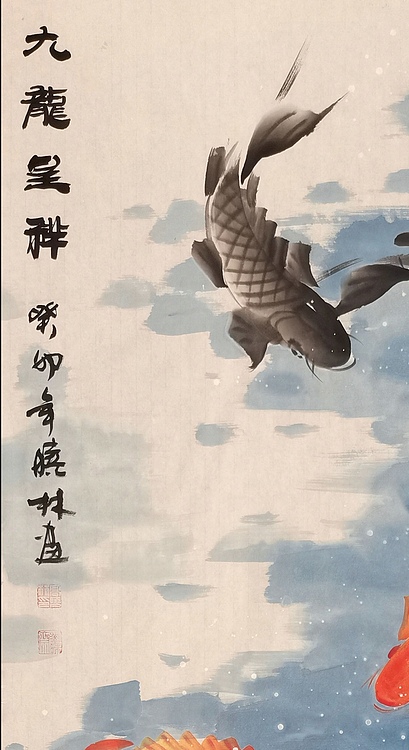 九龍呈祥
癸卯年曉林畫